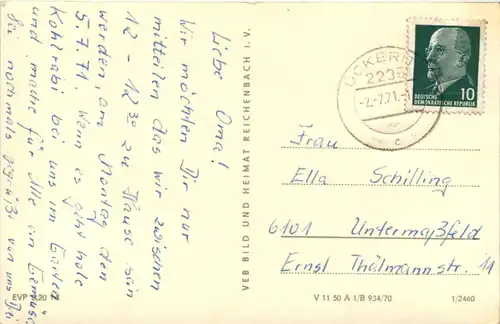 Liebe Oma!
Wir möchten Dir nur
mitteilen das wir zwischen
12 - 12³⁰ zu Hause sein
werden, am Montag den
5.7.71. Wenn es geht hole
Kohlrabi bei uns im Garten
und mache für Alle ein Gemüse
Sei nochmals gegrüßt von uns
VEB BILD UND HEIMAT REICHENBACH I. V.
2235
-2.-7.71.-
c
10
DEUTSCHE
DEMOKRATISCHE REPUBLIK
Frau
Ella Schilling
6101 Untermaßfeld
Ernst Thälmannstr. 11
EVP 0,20 M
V 11 50 A 1/B 934/70
1/2460